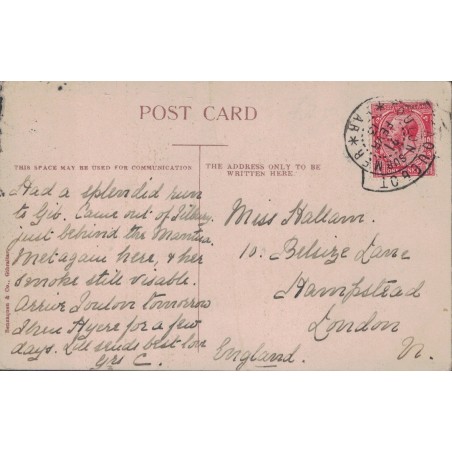 POST CARD
THIS SPACE MAY BE USED FOR COMMUNICATION
THE ADDRESS ONLY TO BE
WRITTEN HERE.
Had a splendid run
to Gib. Came out of Tilbury
just behind the Mantua.
Met again here, & her
smoke still visable.
Arrive Toulon tomorrow
then Hyere for a few
days. send best love
Yrs C.
Miss Hallam.
10. Belsize Lane
Hampstead
London
England. N.
Beanzaquen & Co., Gibraltar.